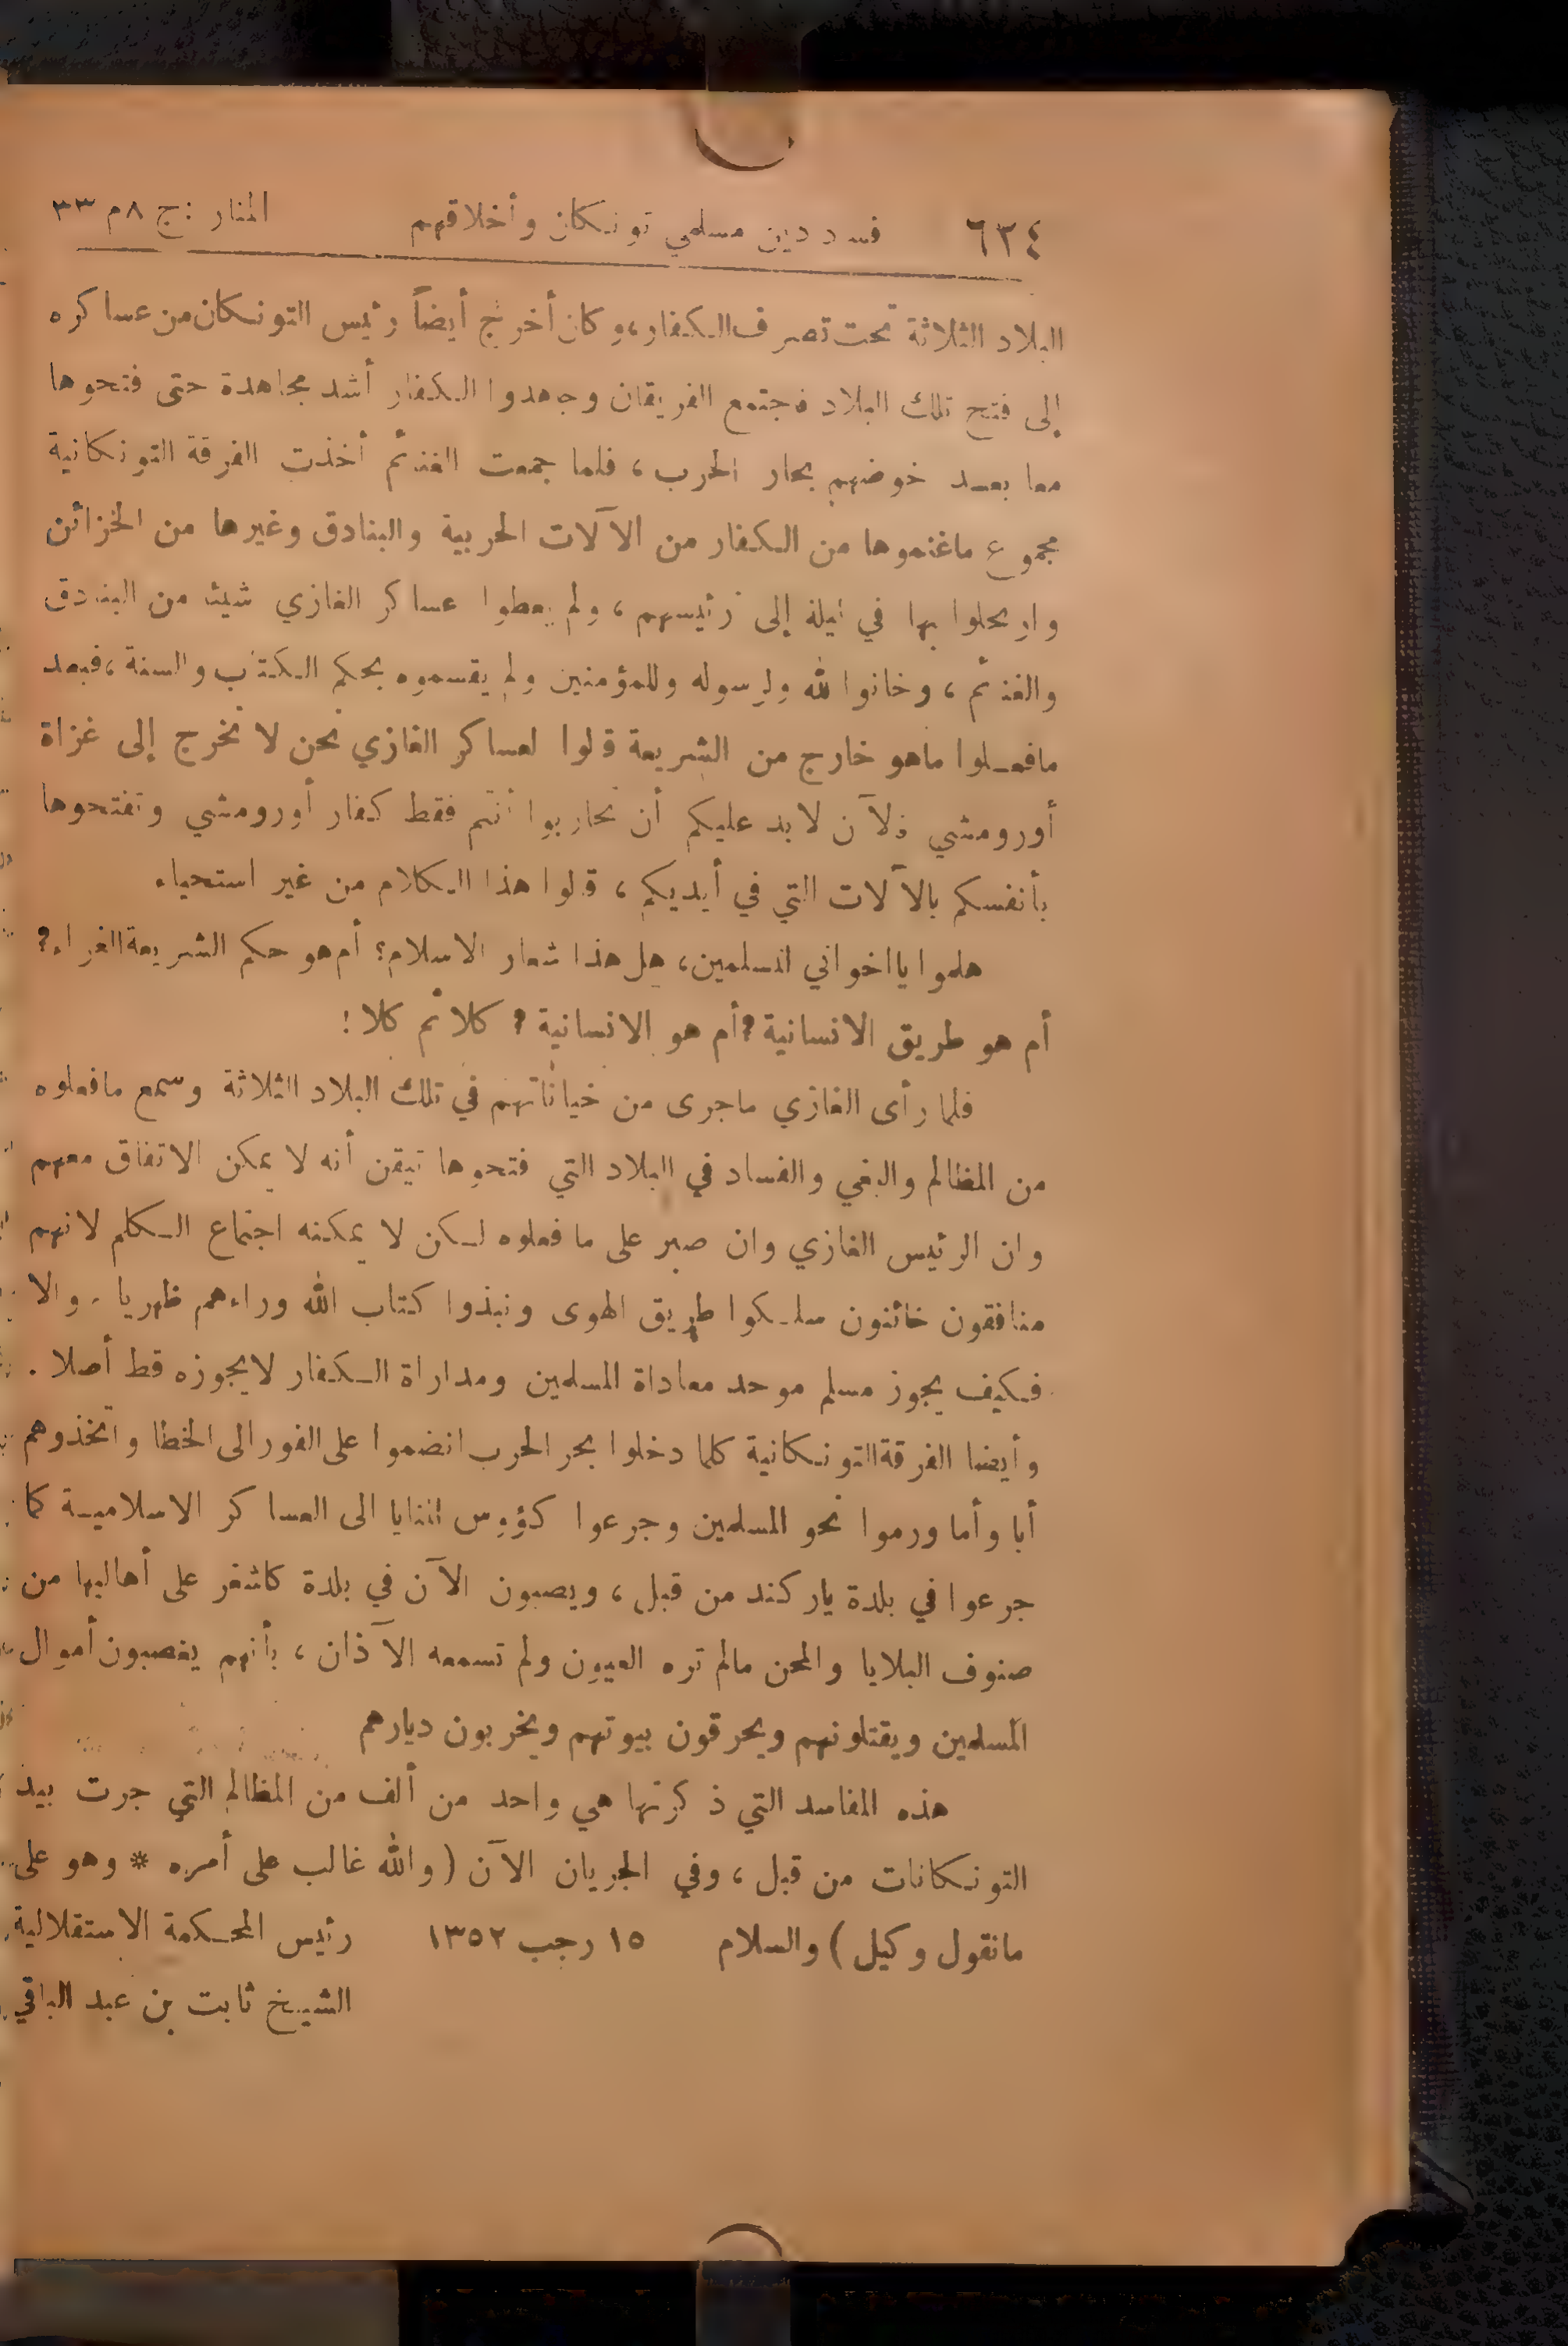 ٦٣٤ فساد دين مسلمي تونكان وأخلاقهم المنار : ج ٨ م ٣٣
البلاد الثلاثة تحت تصرف الكفار، وكان أخرج أيضاً رئيس التونكان من عساكره
إلى فتح تلك البلاد فاجتمع الفريقان وجاهدوا الكفار أشد مجاهدة حتى فتحوها
معا بعد خوضهم بحار الحرب، فلما جمعت الغنائم أخذت الفرقة التونكانية
مجموع ماغنموها من الكفار من الآلات الحربية والبنادق وغيرها من الخزائن
وارتحلوا بها في ليلة إلى رئيسهم، ولم يعطوا عساكر الغازي شيئا من البنادق
والغنائم، وخانوا لله ولرسوله وللمؤمنين ولم يقسموه بحكم الكتاب والسنة، فبعد
مافعلوا ماهو خارج من الشريعة قالوا لعساكر الغازي نحن لا نخرج إلى غزاة
أورومشي فالآن لا بد عليكم أن تحاربوا أنتم فقط كفار أورومشي وتفتحوها
بأنفسكم بالآلات التي في أيديكم، قالوا هذا الكلام من غير استحياء
هلموا يا اخواني المسلمين، هل هذا شعار الاسلام؟ أم هو حكم الشريعة الغراء؟
أم هو طريق الانسانية؟ أم هو الانسانية؟ كلا ثم كلا !
فلما رأى الغازي ماجرى من خياناتهم في تلك البلاد الثلاثة وسمع مافعلوه
من المظالم والبغي والفساد في البلاد التي فتحوها تيقن أنه لا يمكن الاتفاق معهم
وان الرئيس الغازي وان صبر على ما فعلوه لكن لا يمكنه اجتماع الكلم لانهم
منافقون خائنون سلكوا طريق الهوى ونبذوا كتاب الله وراءهم ظهريا، والا
فكيف يجوز مسلم موحد معاداة المسلمين ومداراة الكفار لايجوزه قط أصلا .
وأيضا الفرقة التونكانية كلما دخلوا بحر الحرب انضموا على الفور الى الخطا واتخذوهم
أبا وأما ورموا نحو المسلمين وجرعوا كؤوس المنايا الى العساكر الاسلامية كما
جرعوا في بلدة ياركند من قبل، ويصبون الآن في بلدة كاشغر على أهاليها من
صنوف البلايا والمحن مالم تره العيون ولم تسمعه الآذان، بأنهم يغصبون أموال
المسلمين ويقتلونهم ويحرقون بيوتهم ويخربون ديارهم
هذه المفاسد التي ذكرتها هي واحد من ألف من المظالم التي جرت بيد
التونكانات من قبل، وفي الجريان الآن ( والله غالب على أمره * وهو على
مانقول وكيل ) والسلام ١٥ رجب ١٣٥٢ رئيس المحكمة الاستقلالية
الشيخ ثابت بن عبد الباقي